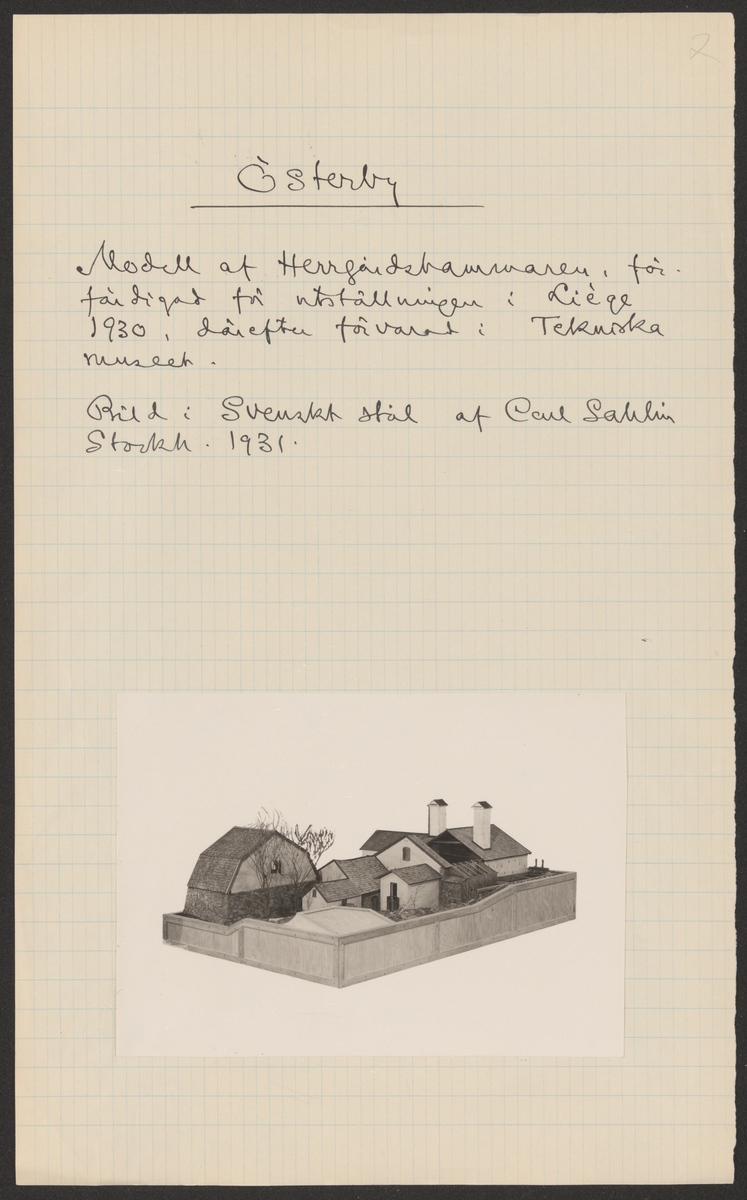 2
Österby
Modell af Herrgårdshammaren, för-
färdigad för utställningen i Liège
1930, därefter förvarad i Tekniska
museet.
Bild i Svenskt stål af Carl Sahlin
Stockh. 1931.